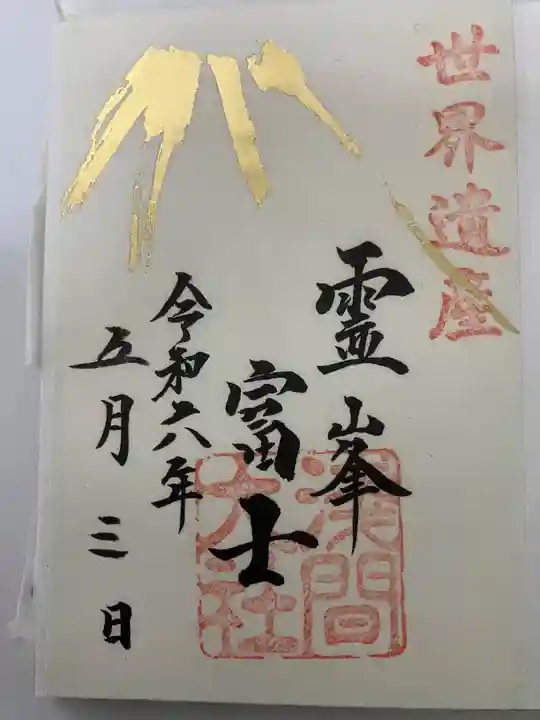 世界遺産
霊峯
富士
令和六年
五月三日
淺間
大社